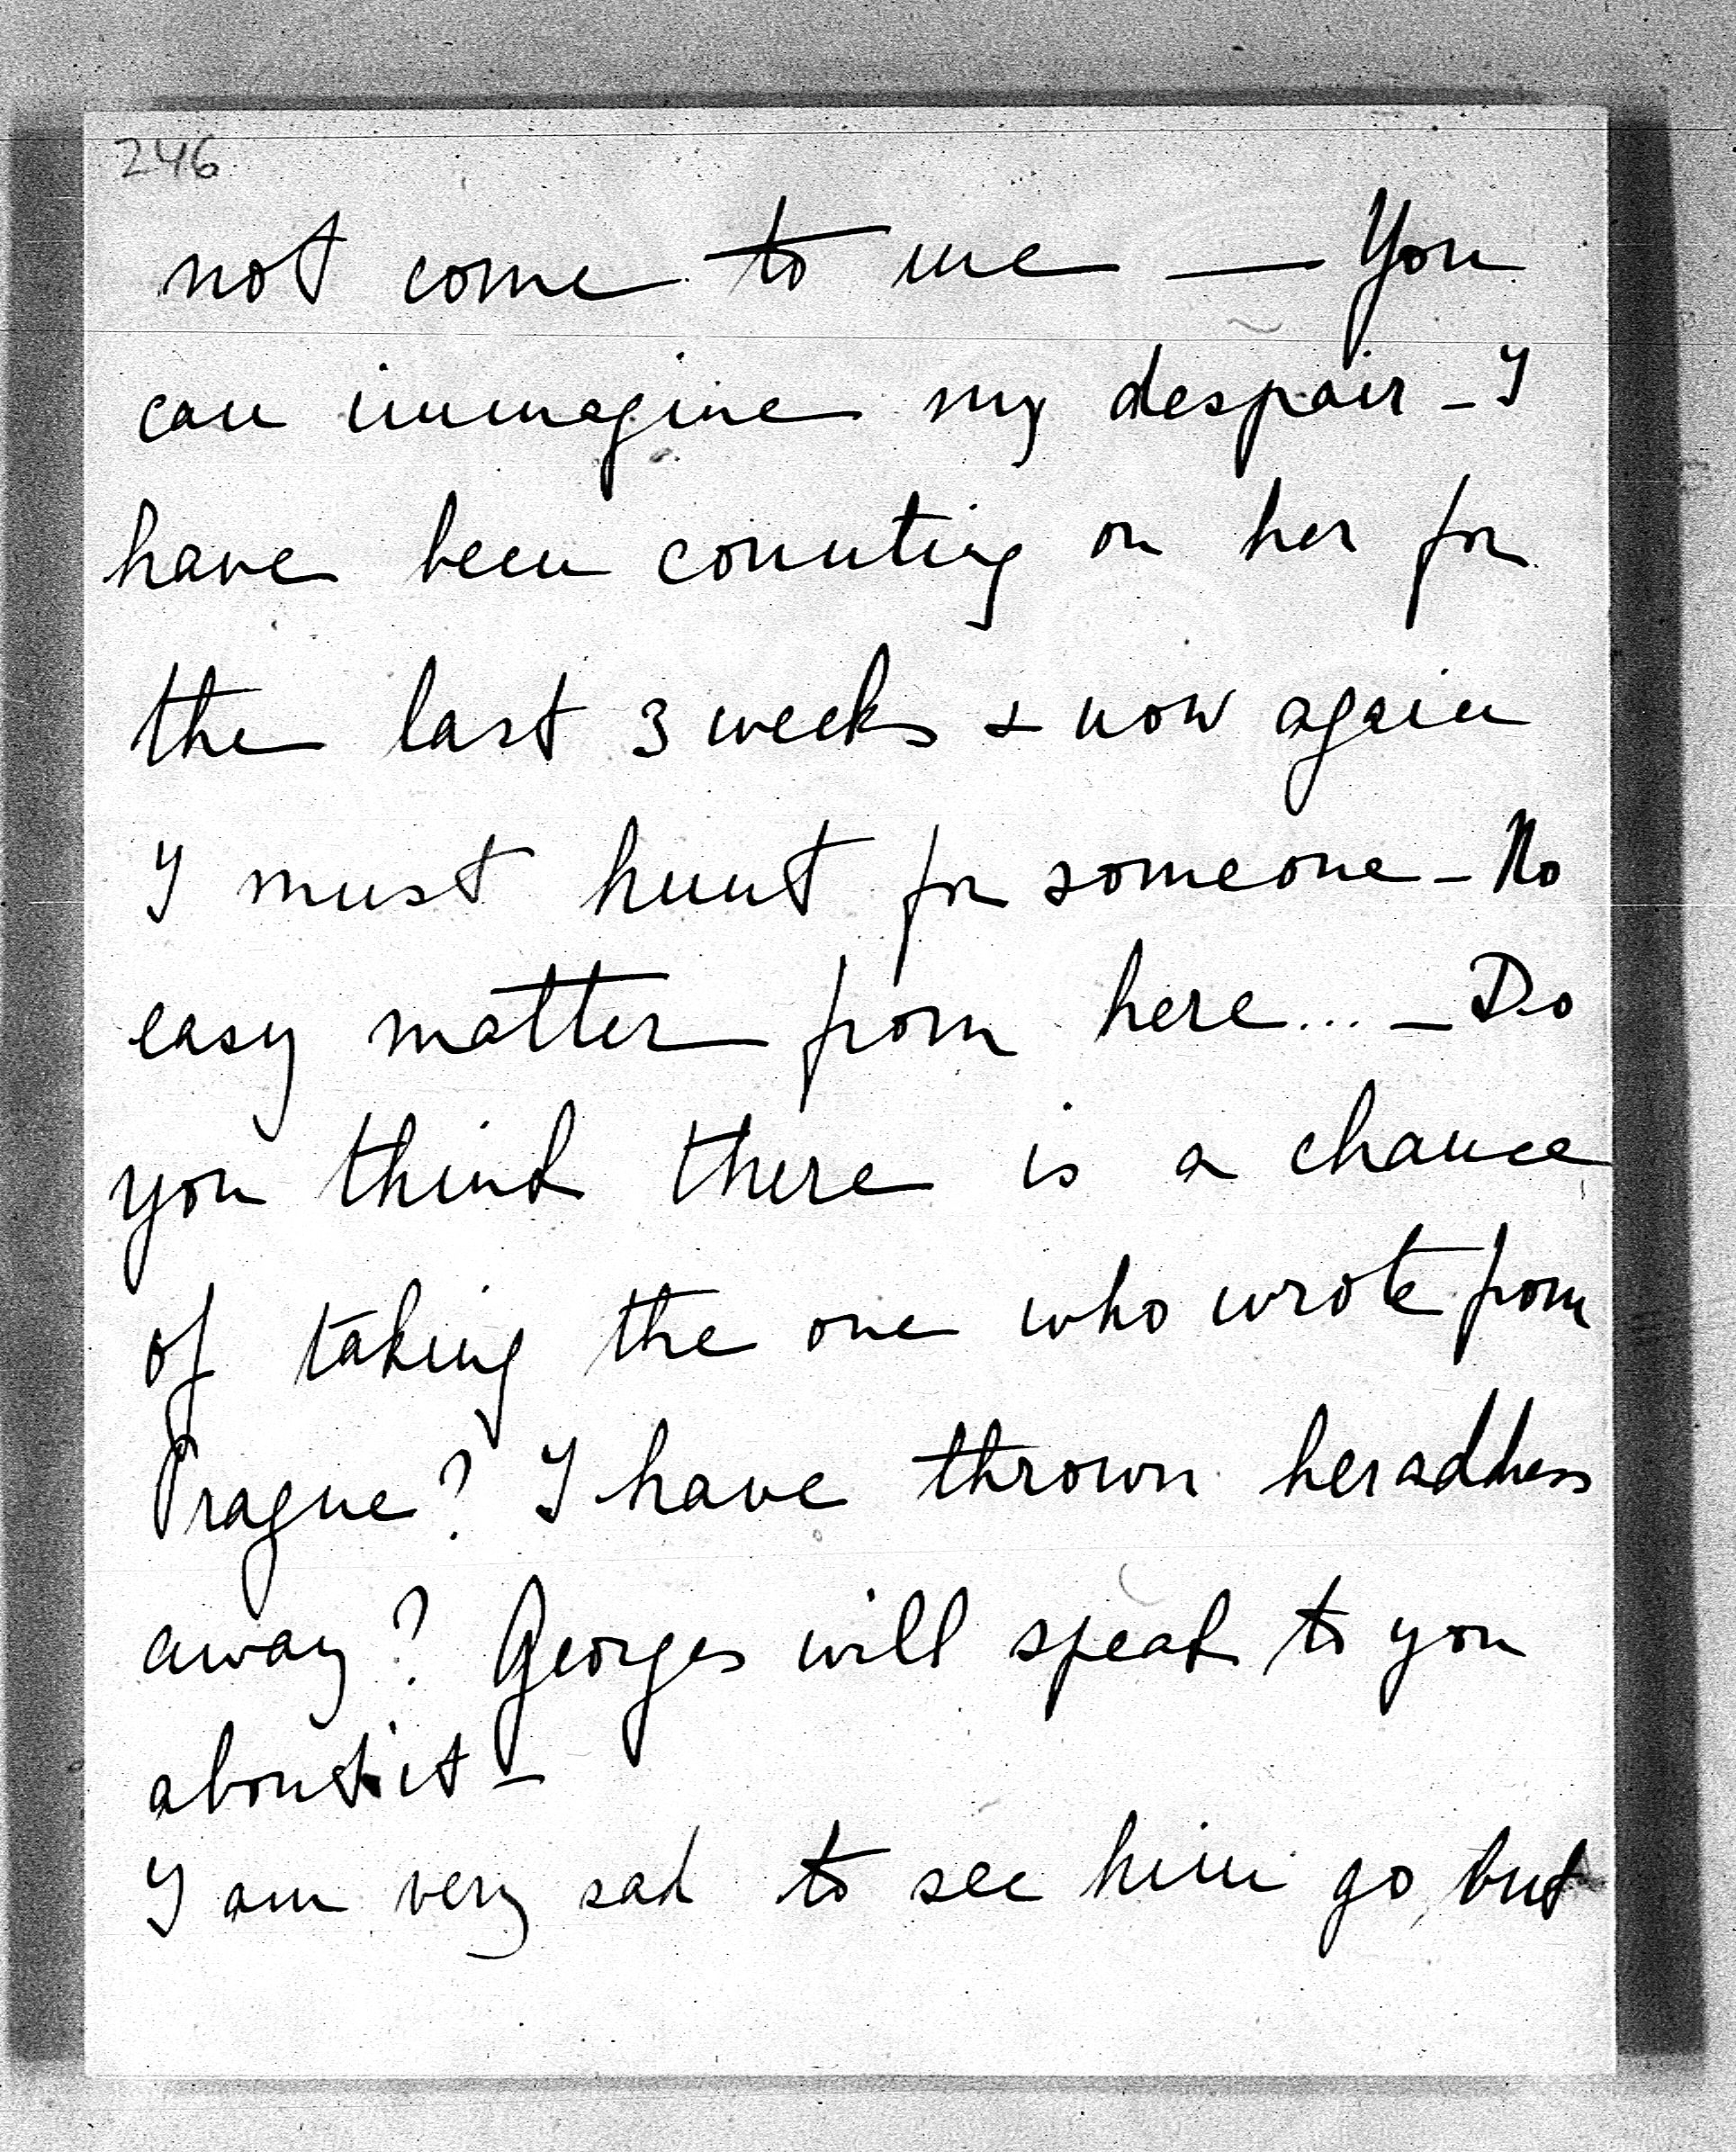 246
not come to me — You
can immagine my despair - I
have been counting on her for
the last 3 weeks & now again
I must hunt for someone - No
easy matter from here... - Do
you think there is a chance
of taking the one who wrote from
Prague? I have thrown her address
away? Georges will speak to you
about it -
I am very sad to see him go, but